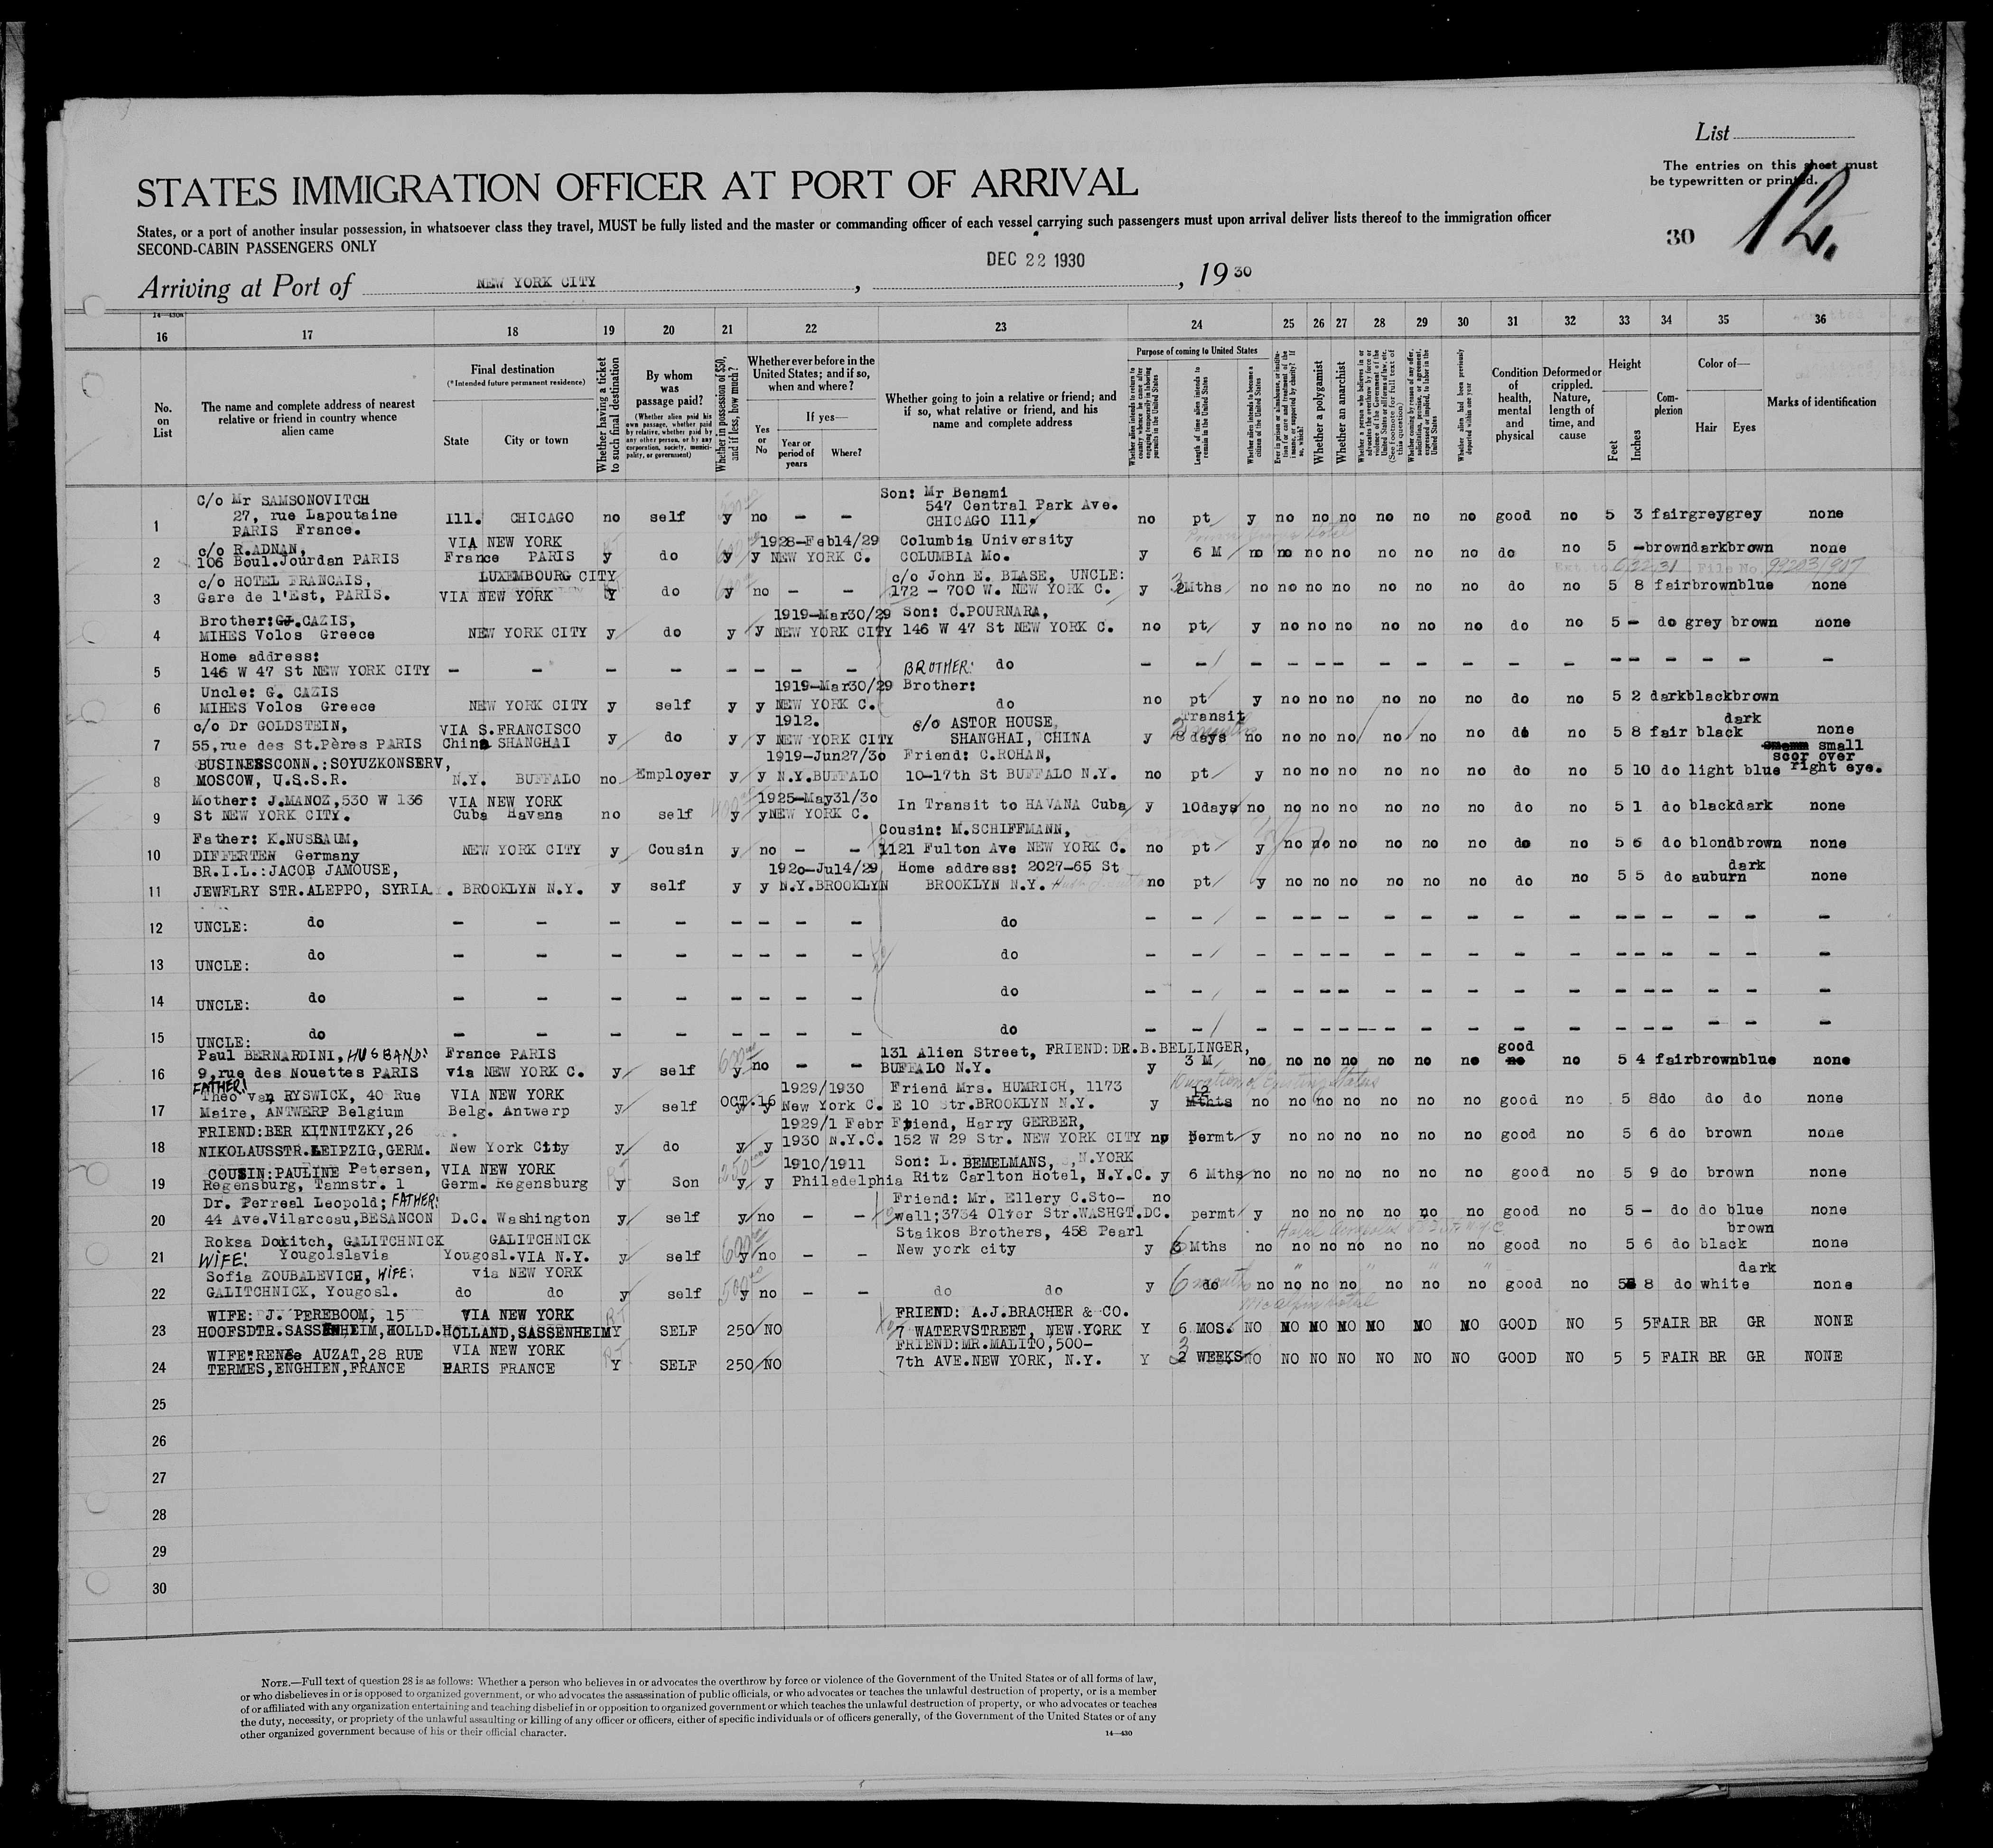 List
The entries on this sheet must
be typewritten or printed.
12.
30
STATES IMMIGRATION OFFICER AT PORT OF ARRIVAL
States, or a port of another insular possession, in whatsoever class they travel, MUST be fully listed and the master or commanding officer of each vessel carrying such passengers must upon arrival deliver lists thereof to the immigration officer
SECOND-CABIN PASSENGERS ONLY
DEC 22 1930
Arriving at Port of NEW YORK CITY , , 19 30
16 17 18 19 20 21 22 23 24 25 26 27 28 29 30 31 32 33 34 35 36
No. on List
The name and complete address of nearest relative or friend in country whence alien came
Final destination
(*Intended future permanent residence)
State City or town
Whether having a ticket to such final destination
By whom was passage paid?
(Whether alien paid his own passage, whether paid by relative, whether paid by any other person, or by any corporation, society, municipality, or government)
Whether in possession of $50, and if less, how much?
Whether ever before in the United States; and if so, when and where?
Yes or No
If yes—
Year or period of years Where?
Whether going to join a relative or friend; and if so, what relative or friend, and his name and complete address
Purpose of coming to United States
Length of time alien intends to remain in the United States
Whether alien intends to become a citizen of the United States
Whether a polygamist
Whether an anarchist
Condition of health, mental and physical
Deformed or crippled. Nature, length of time, and cause
Height
Feet Inches
Complexion
Color of—
Hair Eyes
Marks of identification
c/o Mr SAMSONOVITCH Son: Mr Benami
27, rue Lapoutaine 547 Central Park Ave.
1 PARIS France. Ill. CHICAGO no self y no – – CHICAGO Ill. no pt y no no no no no no good no 5 3 fair grey grey none
c/o R.ADNAN, VIA NEW YORK 1928-Feb14/29 Columbia University
2 106 Boul.Jourdan PARIS France PARIS y do y y NEW YORK C. COLUMBIA Mo. y 6 M no no no no no no no do no 5 – brown dark brown none
c/o HOTEL FRANCAIS, LUXEMBOURG CITY c/o John E. BLASE, UNCLE:
3 Gare de l'Est, PARIS. VIA NEW YORK y do y no – – 172 - 700 W. NEW YORK C. y Mths no no no no no no no do no 5 8 fair brown blue none
Brother: G.CAZIS, 1919-Mar30/29 Son: C.POURNARA,
4 MIHES Volos Greece NEW YORK CITY y do y y NEW YORK CITY 146 W 47 St NEW YORK C. no pt y no no no no no no do no 5 – do grey brown none
Home address:
5 146 W 47 St NEW YORK CITY – – – – – – – – BROTHER: do – – – – – – – – – – – – – – – –
Uncle: G. CAZIS 1919-Mar30/29 Brother:
6 MIHES Volos Greece NEW YORK CITY y self y y NEW YORK C. do no pt y no no no no no no do no 5 2 dark black brown
c/o Dr GOLDSTEIN, VIA S.FRANCISCO 1912. c/o ASTOR HOUSE, Transit dark
7 55, rue des St.Pères PARIS China SHANGHAI y do y y NEW YORK CITY SHANGHAI, CHINA y days no no no no no no no do no 5 8 fair black none
BUSINESSCONN.:SOYUZKONSERV, 1919-Jun27/30 Friend: C.ROHAN, small scor over right eye.
8 MOSCOW, U.S.S.R. N.Y. BUFFALO no Employer y y N.Y.BUFFALO 10-17th St BUFFALO N.Y. no pt y no no no no no no do no 5 10 do light blue
Mother: J.MANOZ,530 W 136 VIA NEW YORK 1925-May31/30
9 St NEW YORK CITY. Cuba Havana no self y y NEW YORK C. In Transit to HAVANA Cuba y 10days no no no no no no no do no 5 1 do black dark none
Father: K.NUSBAUM, Cousin: M.SCHIFFMANN,
10 DIFFERTEN Germany NEW YORK CITY y Cousin y no – – 1121 Fulton Ave NEW YORK C. no pt y no no no no no no do no 5 6 do blond brown none
BR.I.L.:JACOB JAMOUSE, 1920-Jul4/29 Home address: 2027-65 St dark
11 JEWFLRY STR.ALEPPO, SYRIA. BROOKLYN N.Y. y self y y N.Y.BROOKLYN BROOKLYN N.Y. no pt y no no no no no no do no 5 5 do auburn none
12 UNCLE: do – – – – – – – – do – – – – – – – – – – – – – – – –
13 UNCLE: do – – – – – – – – do – – – – – – – – – – – – – – – –
14 UNCLE: do – – – – – – – – do – – – – – – – – – – – – – – – –
15 UNCLE: do – – – – – – – – do – – – – – – – – – – – – – – – –
Paul BERNARDINI, HUSBAND: France PARIS 131 Alien Street, FRIEND: DR.B.BELLINGER, good
16 9,rue des Nouettes PARIS via NEW YORK C. y self y no – – BUFFALO N.Y. y 3 M no no no no no no no no no 5 4 fair brown blue none
FATHER: Duration of Existing Status
Theo van RYSWICK, 40 Rue VIA NEW YORK OCT.16 1929/1930 Friend Mrs. HUMRICH, 1173 12
17 Maire, ANTWERP Belgium Belg. Antwerp y self y y New York C. E 10 Str.BROOKLYN N.Y. y Mths no no no no no no no good no 5 8 do do do none
FRIEND:BER KITNITZKY,26 1929/1 Febr Friend, Harry GERBER,
18 NIKOLAUSSTR.LEIPZIG,GERM. New York City y do y y 1930 N.Y.C. 152 W 29 Str. NEW YORK CITY no permt y no no no no no no good no 5 6 do brown none
COUSIN:PAULINE Petersen, VIA NEW YORK 1910/1911 Son: L. BEMELMANS, N.YORK
19 Regensburg, Tannstr. 1 Germ. Regensburg y Son y y Philadelphia Ritz Carlton Hotel, N.Y.C. y 6 Mths no no no no no no no good no 5 9 do brown none
Dr. Perreal Leopold; FATHER: Friend: Mr. Ellery C.Sto- no
20 44 Ave.Vilarceau,BESANCON D.C. Washington y self y no – – well;3734 Olver Str.WASHGT.DC. permt y no no no no no no good no 5 – do do blue none
Roksa Dokitch, GALITCHNICK GALITCHNICK Staikos Brothers, 458 Pearl brown
21 WIFE: Yougoislavia Yougosl.VIA N.Y. y self y no – – New york city y 6 Mths no no no no no no no good no 5 6 do black none
Sofia ZOUBALEVICH, WIFE: via NEW YORK dark
22 GALITCHNICK, Yougosl. do do y self 500 y no – – do do y 6 months do no no no no no no no good no 5 8 do white none
WIFE: J. PEREBOOM, 15 VIA NEW YORK FRIEND: A.J.BRACHER & CO. McAlpin hotel
23 HOOFSDTR.SASSENHEIM,HOLLD. HOLLAND,SASSENHEIM Y SELF 250 NO 7 WATERVSTREET, NEW YORK Y 6 MOS. NO NO NO NO NO NO NO GOOD NO 5 5 FAIR BR GR NONE
WIFE:RENée AUZAT,28 RUE VIA NEW YORK FRIEND:MR.MALITO,500- 3
24 TERMES,ENGHIEN,FRANCE PARIS FRANCE Y SELF 250 NO 7th AVE.NEW YORK, N.Y. Y 2 WEEKS NO NO NO NO NO NO NO GOOD NO 5 5 FAIR BR GR NONE
25
26
27
28
29
30
NOTE.—Full text of question 28 is as follows: Whether a person who believes in or advocates the overthrow by force or violence of the Government of the United States or of all forms of law,
or who disbelieves in or is opposed to organized government, or who advocates the assassination of public officials, or who advocates or teaches the unlawful destruction of property, or is a member
of or affiliated with any organization entertaining and teaching disbelief in or opposition to organized government or which teaches the unlawful destruction of property, or who advocates or teaches
the duty, necessity, or propriety of the unlawful assaulting or killing of any officer or officers, either of specific individuals or of officers generally, of the Government of the United States or of any
other organized government because of his or their official character.
14—430